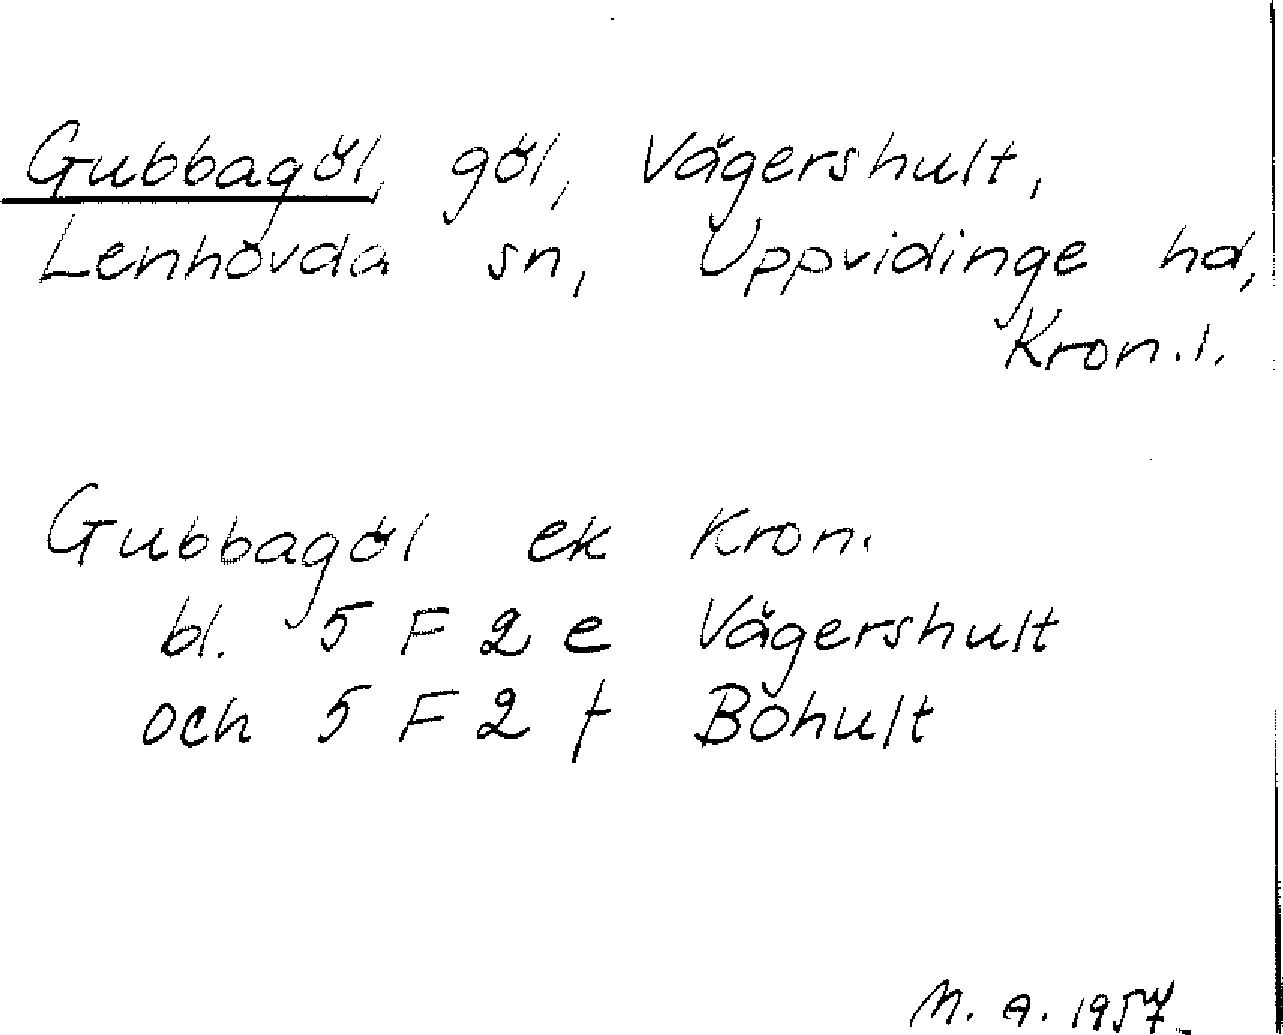 Gubbagöl, göl, Vägershult,
Lenhovda sn, Uppvidinge hd,
Kron. l.
Gubbagöl ek Kron.
bl. 5 F 2 e Vägershult
och 5 F 2 f Bohult
M. A. 1957.